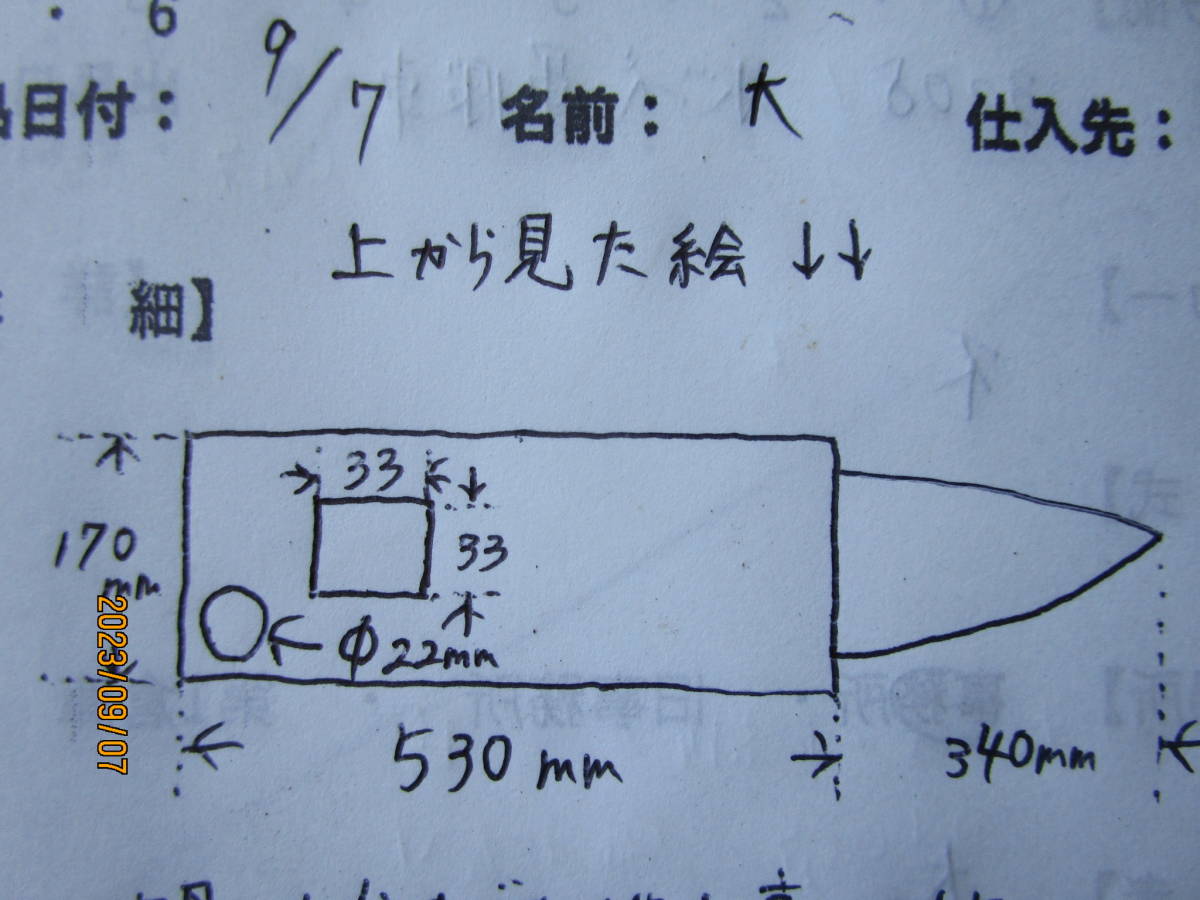 ・6
品日付： 9/7 名前： 大 仕入先：
上から見た絵 ↓↓
細】
33
170
mm
33
φ22mm
530mm
340mm
2023/09/07